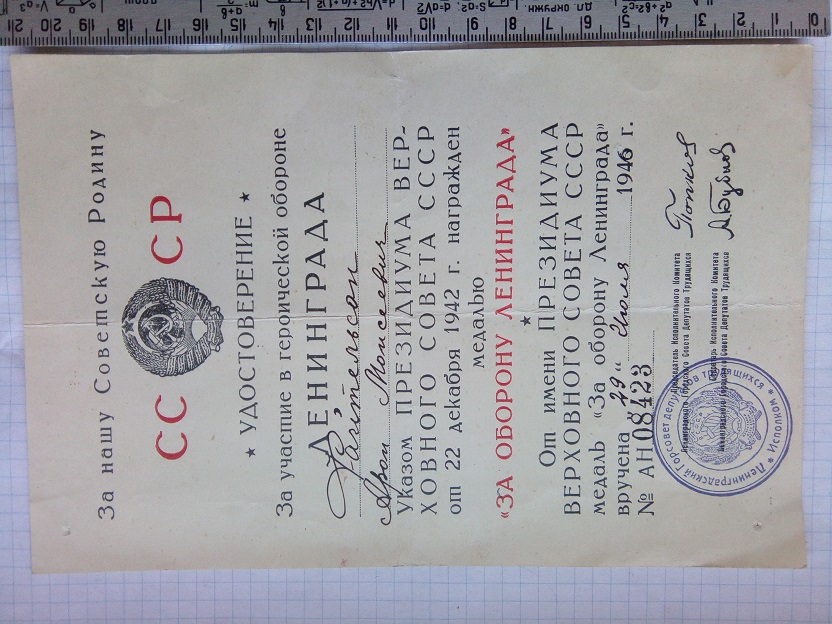 За нашу Советскую Родину
СС СР
★ УДОСТОВЕРЕНИЕ ★
За участие в героической обороне
ЛЕНИНГРАДА
Арон Моисеевич
указом ПРЕЗИДИУМА ВЕР-
ХОВНОГО СОВЕТА СССР
от 22 декабря 1942 г. награжден
медалью
«ЗА ОБОРОНУ ЛЕНИНГРАДА»
★
От имени ПРЕЗИДИУМА
ВЕРХОВНОГО СОВЕТА СССР
медаль «За оборону Ленинграда»
вручена „29" Июля 1946 г.
№ АН08423
Председатель Исполнительного Комитета
Ленинградского Городского Совета Депутатов Трудящихся
Попков
Секретарь Исполнительного Комитета
Ленинградского Городского Совета Депутатов Трудящихся
АБубнов
Ленинградский Горсовет депутатов трудящихся ★ Исполком ★
21 20 19 18 17 16 15 14 13 12 11 10 9 8 7 6 5 4 3 2 1 0